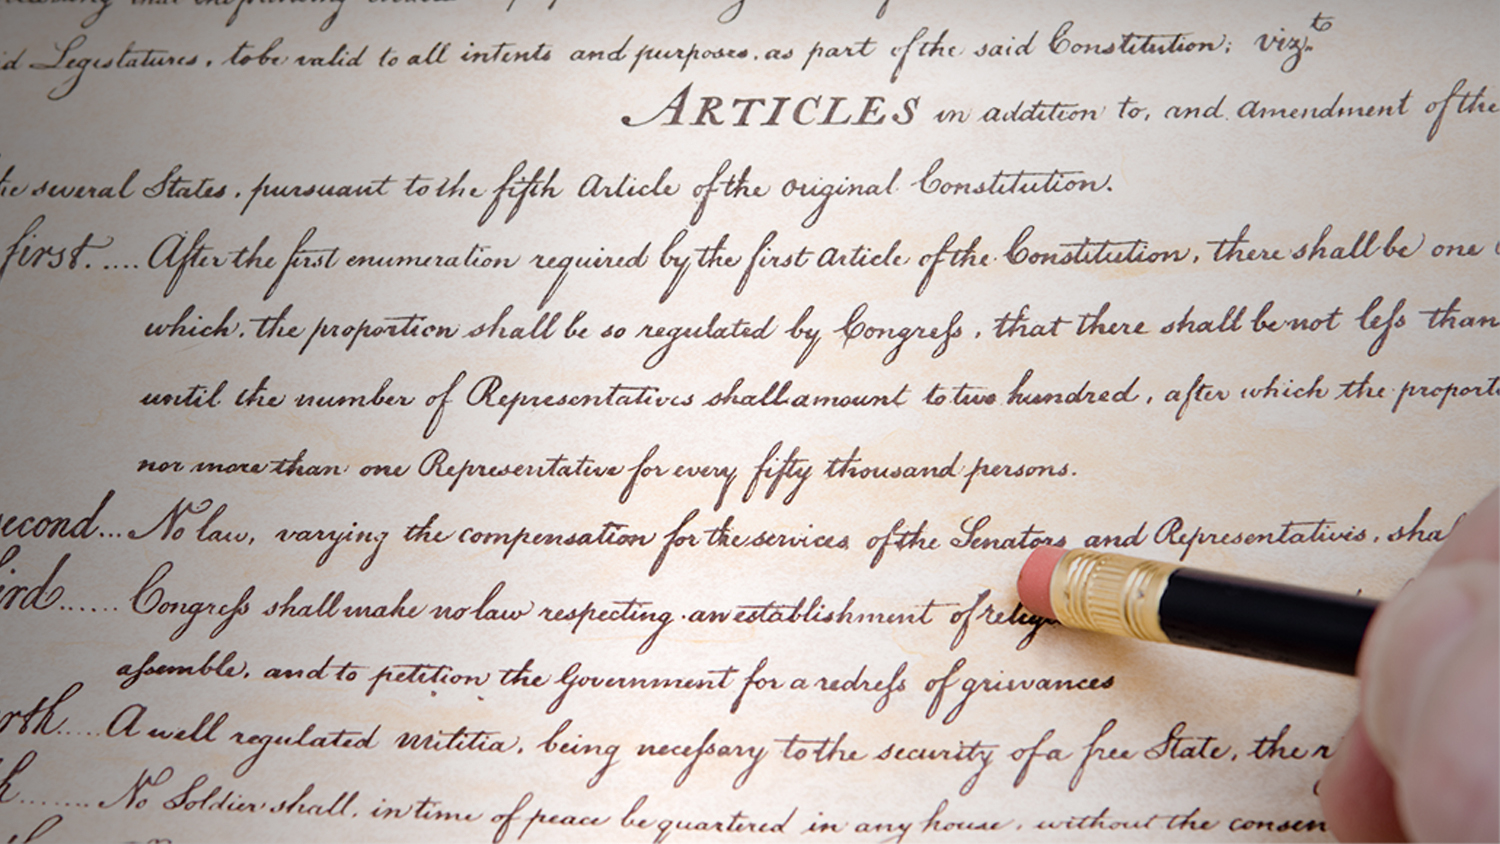 d Legislatures, to be valid to all intents and purposes, as part of the said Constitution; vizt.
ARTICLES in addition to, and amendment of the
the several States, pursuant to the fifth Article of the original Constitution.
first..... After the first enumeration required by the first Article of the Constitution, there shall be one
which, the proportion shall be so regulated by Congreſs, that there shall be not leſs than
until the number of Representatives shall amount to two hundred, after which the proport
nor more than one Representative for every fifty thousand persons.
econd... No law, varying the compensation for the services of the Senators and Representatives, sha
ird...... Congreſs shall make no law respecting an establishment of relig
aſsemble, and to petition the Government for a redreſs of grievances
rth..... A well regulated militia, being neceſsary to the security of a free State, the r
h....... No Soldier shall, in time of peace be quartered in any house, without the consen